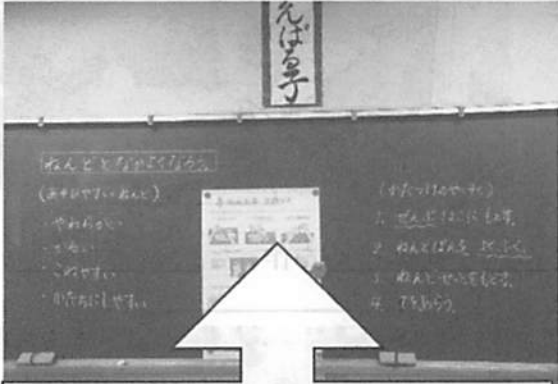 えばる子
ねんどとなかよくなろう。
(あそびやすいねんど)
・やわらかい
・かるい
・こねやすい
・かたちにしやすい
(かたづけのやくそく)
1. ぜんぶはこにもどす。
2. ねんどばんを
3. ねんどせっとをもどす。
4. てをあらう。